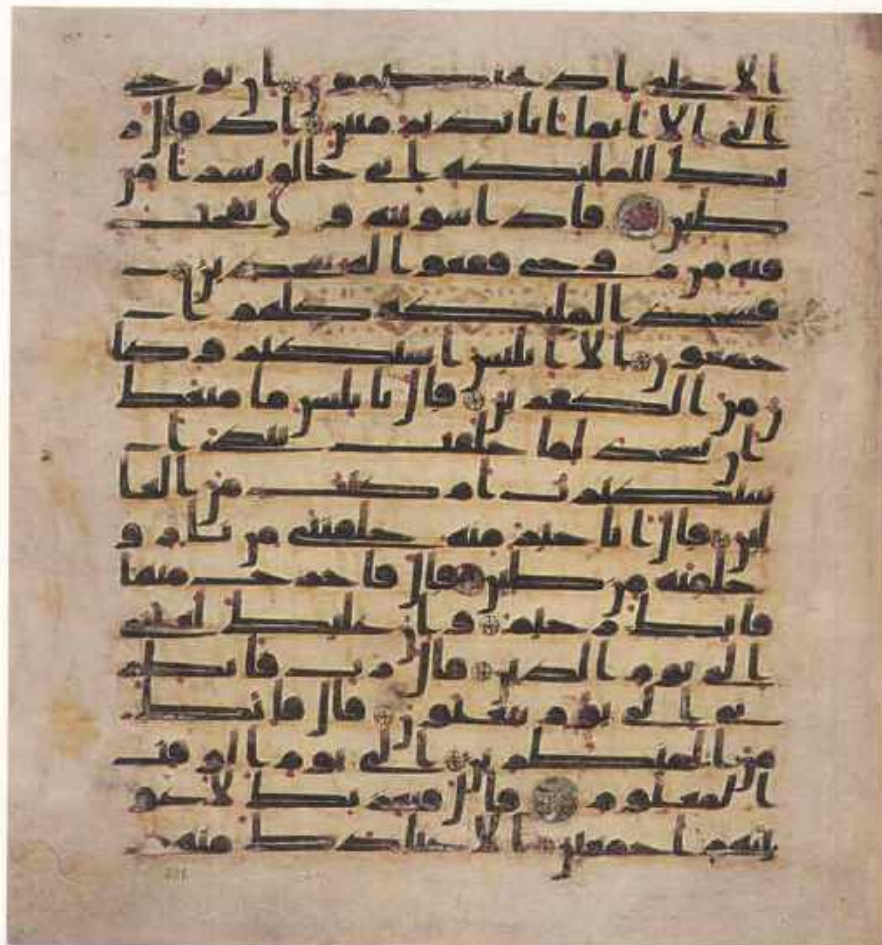 الاعلى اذ يختصمون ان يوحى
الي الا انما انا نذير مبين اذ قال ر
بك للملئكة اني خالق بشرا من
طين فاذا سويته و نفخت
فيه من روحي فقعوا له سجدين
فسجد الملئكة كلهم ا
جمعون الا ابليس استكبر وكا
ن من الكفرين قال يابليس ما منعك
ان تسجد لما خلقت بيدي ا
ستكبرت ام كنت من العا
لين قال انا خير منه خلقتني من نار و
خلقته من طين قال فاخرج منها
فانك رجيم وان عليك لعنتي
الى يوم الدين قال رب فانظر
ني الى يوم يبعثون قال فانك
من المنظرين الى يوم الوقت
المعلوم قال فبعزتك لاغو
ينهم اجمعين الا عبادك منهم